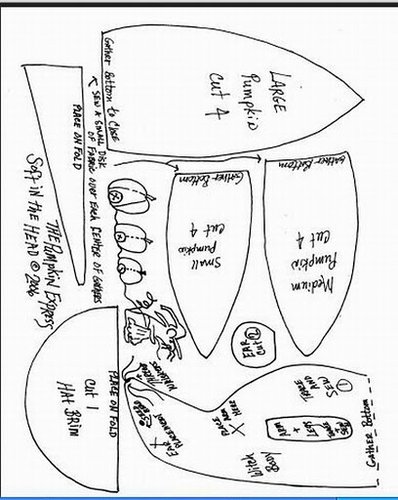 Gather Bottom to Close
LARGE
Pumpkin
Cut 4
SEW A SMALL DISK
OF FABRIC OVER EACH CENTER OF GATHERS
PLACE ON FOLD
THE PUMPKIN EXPRESS
Soft in the HEAD © 2006
Gather Bottom
Small
Pumpkin
cut 4
Gather Bottom
Medium
Pumpkin
cut 4
EAR
Cut 2
PLACE ON FOLD
Cut 1
HAT BRIM
EAR
PLACEMENT
PLACE
ARM
HERE
Witch
Body
TRACE
AND
SEW
1
LEG
+
ARM
Gather Bottom